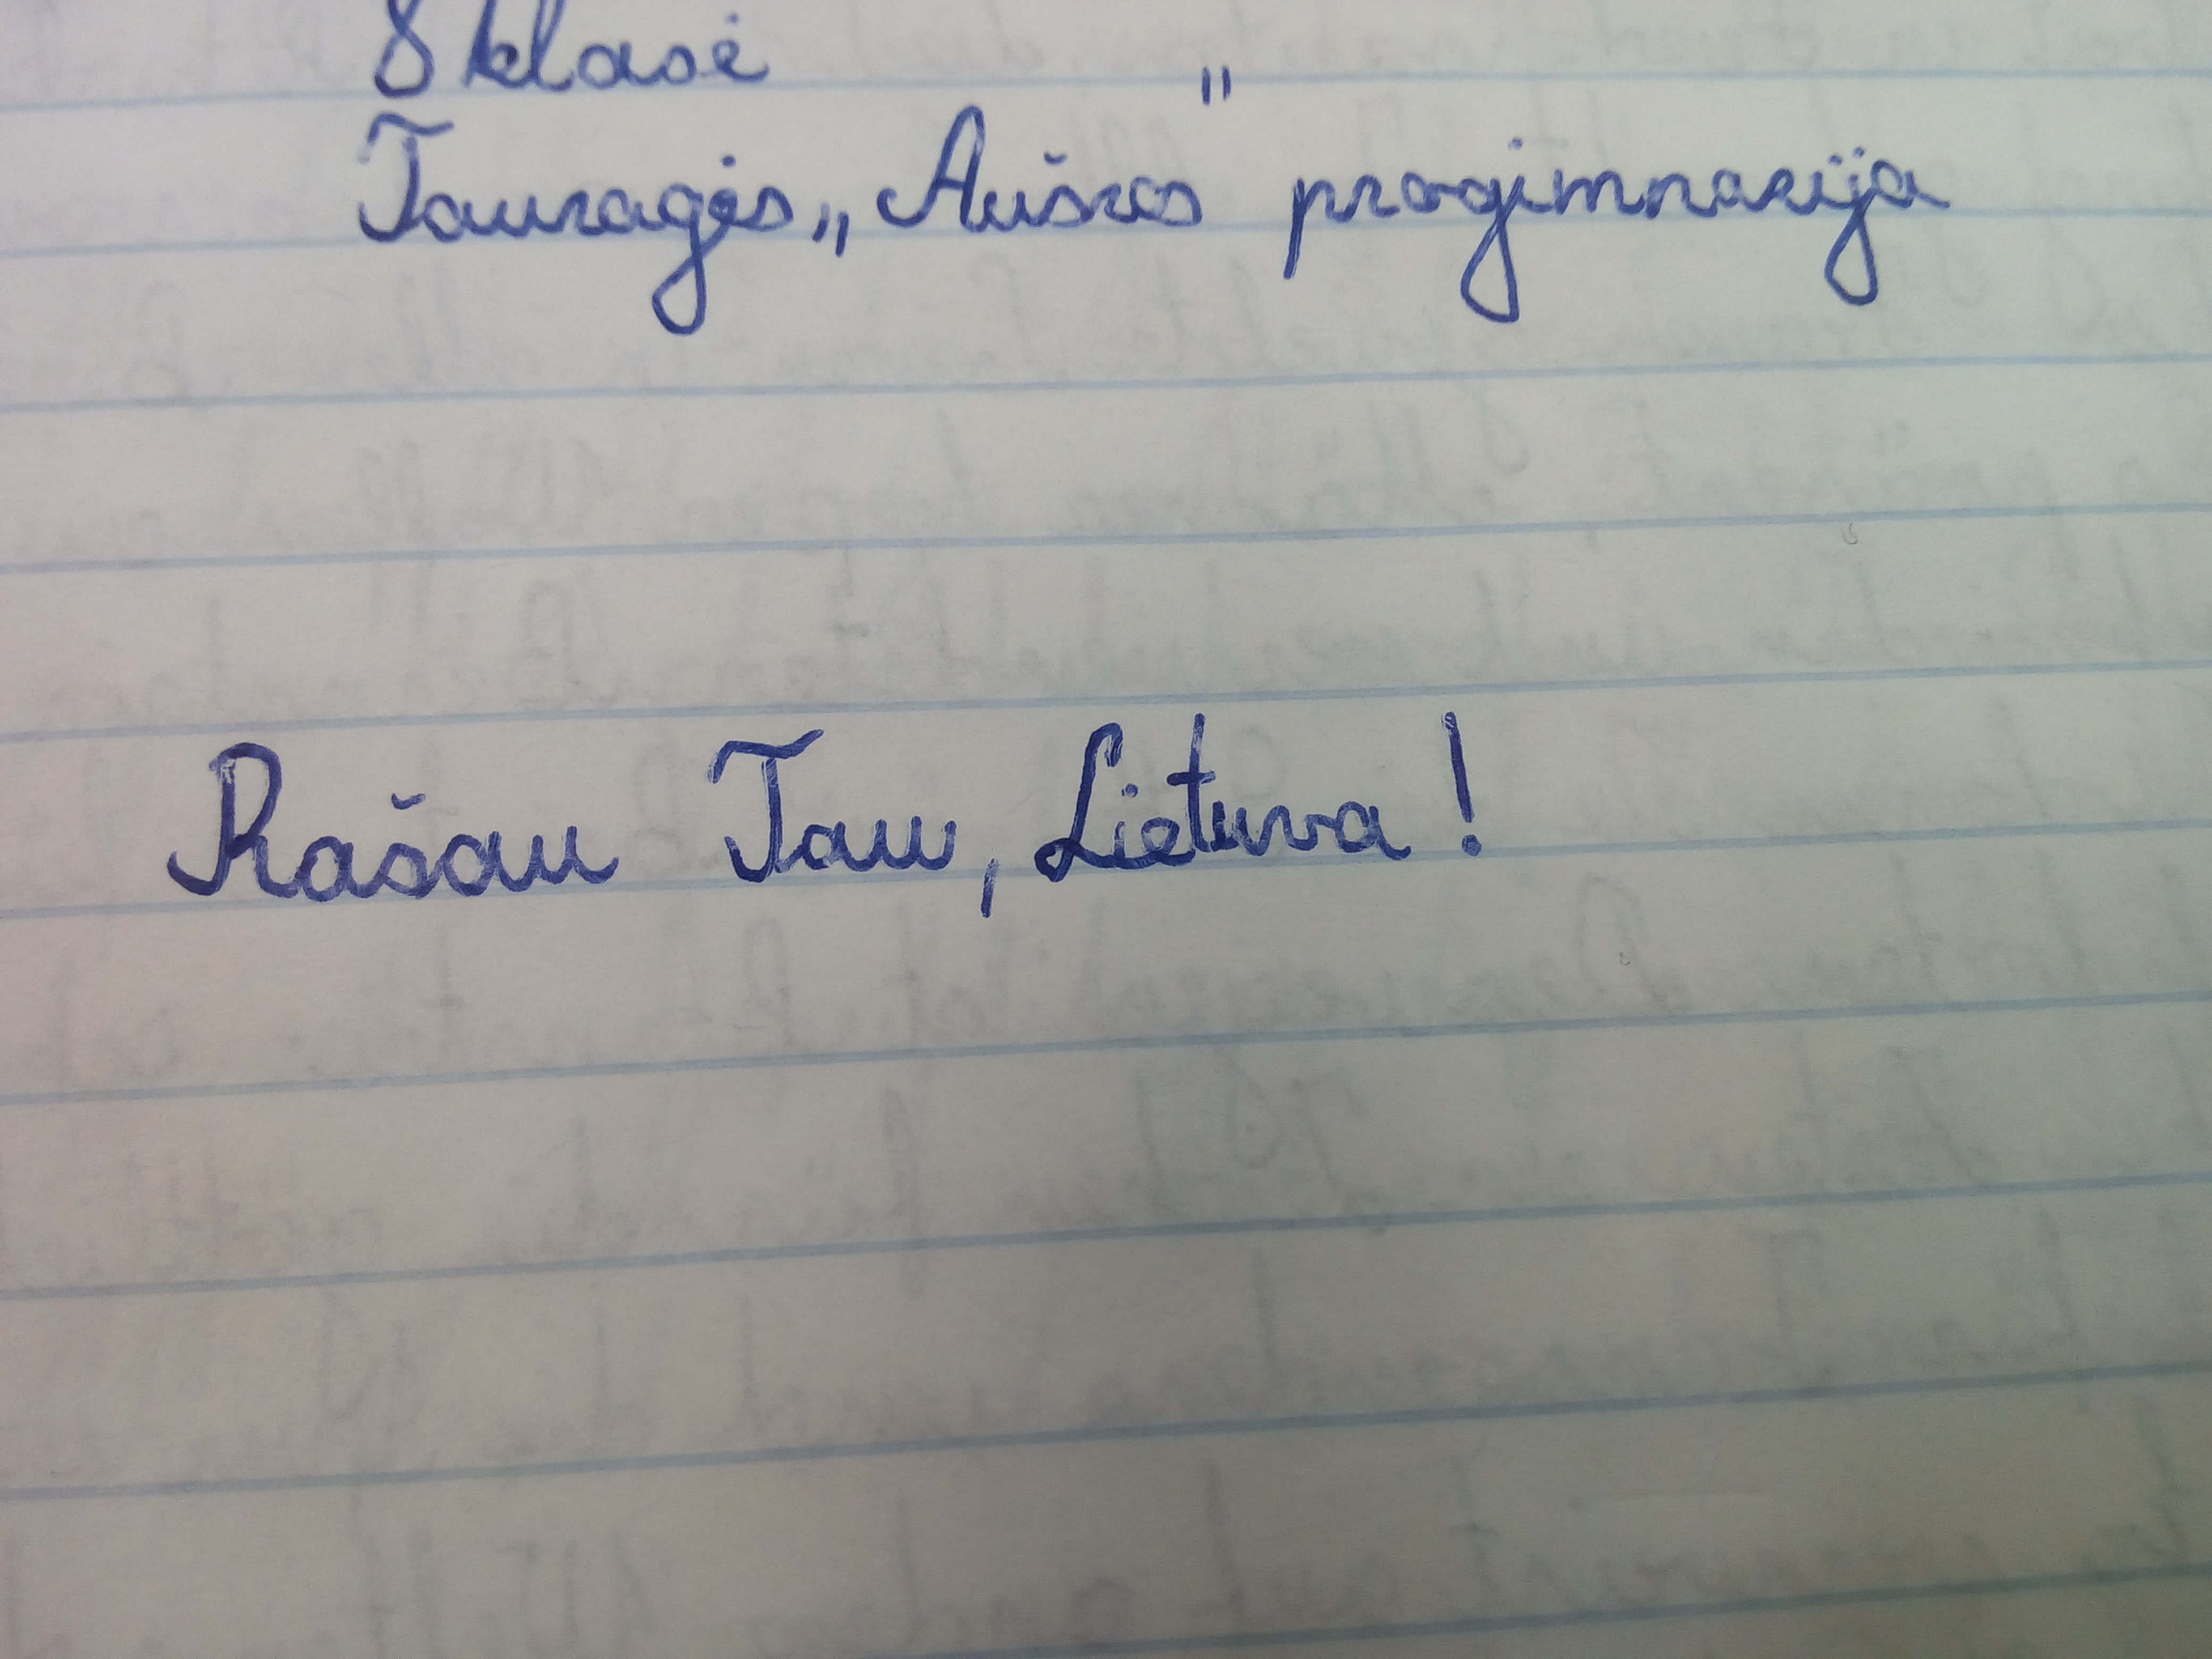 8 klasė
Tauragės „Aušros" progimnazija
Rašau Tau, Lietuva!